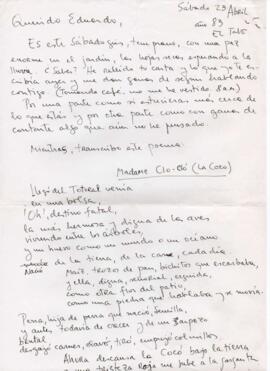 Sábado 29 Abril
año 89
El Tala
Querido Eduardo,
Es este Sábado gris, temprano, con una paz
enorme en el jardín, las hojas rojas esperando a la
lluvia. ¿Sabes? He releído tu carta y lo que yo te es-
cribía ayer y me dan ganas de seguir hablando
contigo (tomando café, no me he vestido 8 a.m.)
Por una parte como si estuvieras más cerca de
lo que estás y por otra parte con ganas de
contarte algo que aún no he pensado.
Mientras, transcribo este poema:
Madame Clo-Cló (La Coco)
Llegó del Totoral venía
en una bolsa,
¡Oh! destino fatal,
la más hermosa y digna de las aves
viviendo entre los árboles,
y un huevo como un mundo o un océano
de la tierra, de la carne, cada día
Nació
Maíz, trozos de pan, bichitos que escarbaba,
y ella, digna, señorial, erguida,
como otra flor del patio,
como una piedra que hablaba y se movía.
Perra, hija de perra que nació, semilla,
y antes, todavía de crecer y de un zarpazo
brutal
desgajó carnes, ojos, tiró, empujó colmillos.
Ahora descansa la Coco bajo la tierra
tristeza roja me sube a la garganta